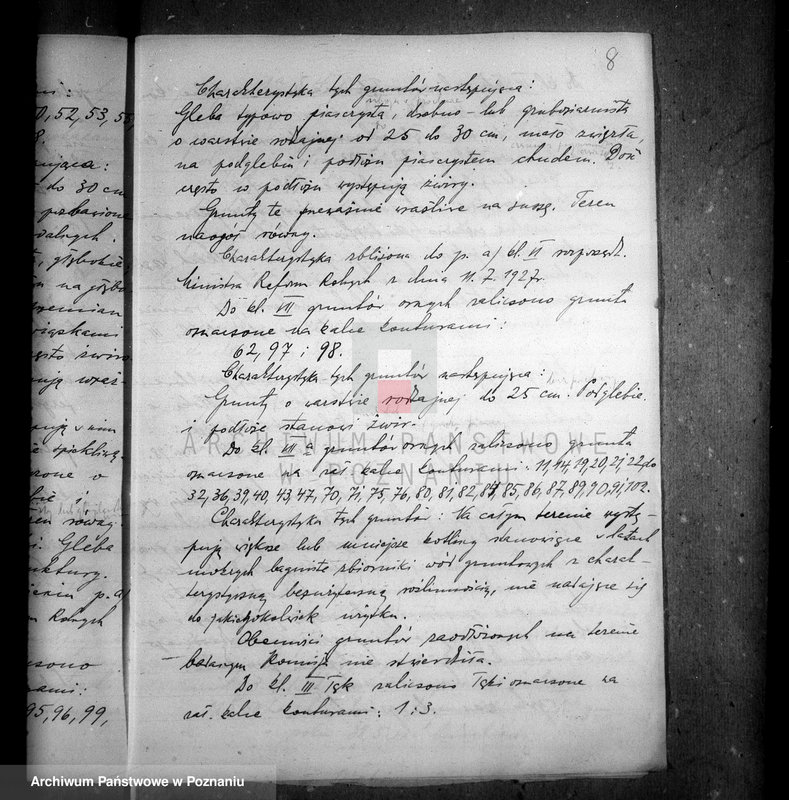 8
Charakterystyka tych gruntów następująca:
Gleba typowo piaszczysta, drobno- lub gruboziarnista
o warstwie rodzajnej od 25 do 30 cm, mało zwięzła,
na podglebiu i podłożu piaszczystem chudem. Dość
często w podłożu występują żwiry.
Grunty te przeważnie wrażliwe na suszę. Teren
naogół równy.
Charakterystyka zbliżona do p. a/ kl. VI rozporządz.
Ministra Reform Rolnych z dnia 11.7.1927r.
Do kl. VII gruntów ornych zaliczono grunta
oznaczone na kalce konturami:
62, 97 i 98.
Charakterystyka tych gruntów następująca:
Grunty o warstwie rodzajnej do 25 cm. Podglebie
i podłoże stanowi żwir.
Do kl. VII a gruntów ornych zaliczono grunta
oznaczone na zał. kalce konturami: 11, 14, 19, 20, 21, 22,
32, 36, 39, 40, 43, 47, 70, 71, 75, 76, 80, 81, 82, 84, 85, 86, 87, 89, 90, 91, 102.
Charakterystyka tych gruntów: Na całym terenie wystę-
pują większe lub mniejsze kotliny stanowiące w latach
mokrych bagniste zbiorniki wód gruntowych z charak-
terystyczną bezużyteczną roślinnością, nie nadające się
do jakiegokolwiek użytku.
Obecności gruntów zaołdzonych na terenie
badanym Komisja nie stwierdziła.
Do kl. III łąk zaliczono łąki oznaczone na
zał. kalce konturami: 1 i 3.
52, 53, 55,
do 30 cm
głębokie
Gleba
Rolnych
95, 96, 99,
ARCHIWUM PAŃSTWOWE
W POZNANIU
Archiwum Państwowe w Poznaniu